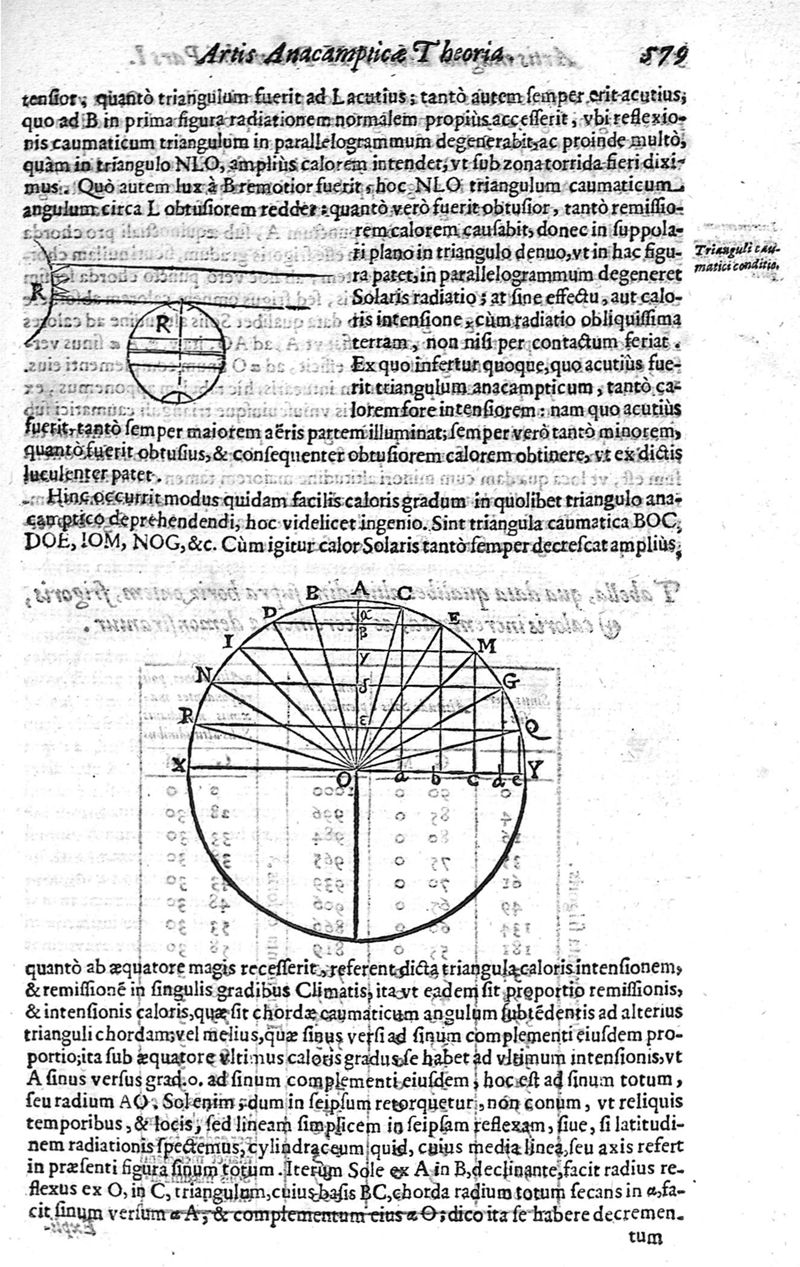 Artis Anacampticæ Theoria. 579
tensior, quantò triangulum fuerit ad L acutius; tantò autem semper erit acutius,
quo ad B in prima figura radiationem normalem propius accesserit, vbi reflexio-
nis caumaticum triangulum in parallelogrammum degenerabit, ac proinde multò,
quàm in triangulo NLO, ampliùs calorem intendet, vt sub zona torrida fieri dixi-
mus. Quò autem lux à B remotior fuerit, hoc NLO triangulum caumaticum
angulum circa L obtusiorem reddet: quantò verò fuerit obtusior, tantò remissio-
rem calorem causabit, donec in suppola-
ri plano in triangulo denuo, vt in hac figu-
ra patet, in parallelogrammum degeneret
Solaris radiatio; at sine effectu, aut calo-
ris intensione, cùm radiatio obliquissima
terram, non nisi per contactum feriat.
Ex quo infertur quoque, quo acutiùs fue-
rit triangulum anacampticum, tantò ca-
lorem fore intensiorem: nam quo acutiùs
Trianguli cau-
matici conditio.
R
R
fuerit, tantò semper maiorem aëris partem illuminat; semper verò tantò minorem,
quantò fuerit obtusius, & consequenter obtusiorem calorem obtinere, vt ex dictis
luculenter patet.
Hinc occurrit modus quidam facilis caloris gradum in quolibet triangulo ana-
camptico deprehendendi, hoc videlicet ingenio. Sint triangula caumatica BOC,
DOE, IOM, NOG, &c. Cùm igitur calor Solaris tantò semper decrescat ampliùs,
B A C
D α E
β
I γ M
N δ G
R ε Q
X O a b c d e Y
quantò ab æquatore magis recesserit, referent dicta triangula caloris intensionem,
& remissionē in singulis gradibus Climatis, ita vt eadem sit proportio remissionis,
& intensionis caloris, quæ sit chordæ caumaticum angulum subtēdentis ad alterius
trianguli chordam; vel melius, quæ sinus versi ad sinum complementi eiusdem pro-
portio; ita sub æquatore vltimus caloris gradus se habet ad vltimum intensionis, vt
A sinus versus grad. 0. ad sinum complementi eiusdem, hoc est ad sinum totum,
seu radium AO. Sol enim, dum in seipsum retorquetur, non conum, vt reliquis
temporibus, & locis, sed lineam simplicem in seipsam reflexam, siue, si latitudi-
nem radiationis spectemus, cylindraceum quid, cuius media linea, seu axis refert
in præsenti figura sinum totum. Iterum Sole ex A in B, declinante, facit radius re-
flexus ex O, in C, triangulum, cuius basis BC, chorda radium totum secans in α, fa-
cit sinum versum α A, & complementum eius α O; dico ita se habere decremen-
tum